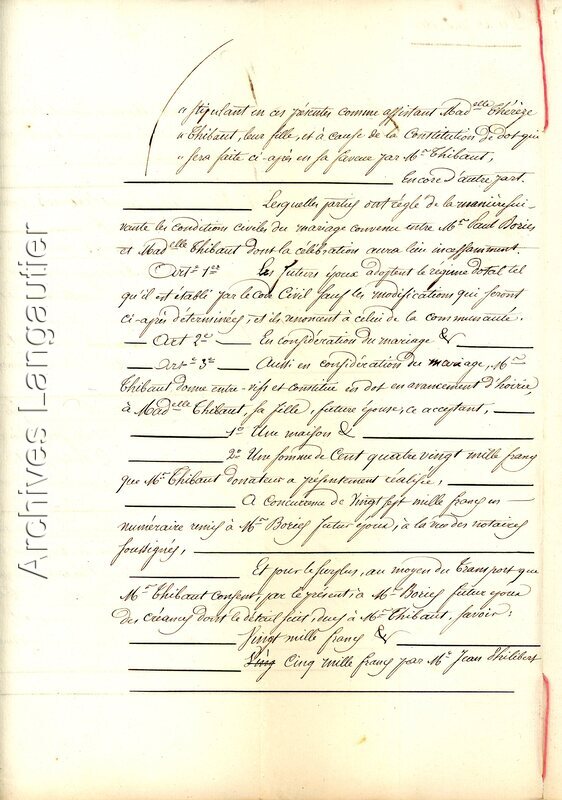 « stipulant en ces présentes comme assistant Mad.elle Thérèze
« Thibaut, leur fille, et à cause de la Constitution de dot qui
« sera faite ci-après en sa faveur par Mr Thibaut,
Encore d'autre part.
Lesquelles parties ont réglé de la manière sui-
vante les conditions civiles du mariage convenu entre Mr Paul Bories
et Mad.elle Thibaut dont la célébration aura lieu incessamment.
Art. 1er Les futurs époux adoptent le régime dotal tel
qu'il est établi par le Code Civil sauf les modifications qui seront
ci-après déterminées, et ils renoncent à celui de la communauté.
Art. 2e En considération du mariage &
Art. 3e Aussi en considération du mariage, Mr
Thibaut donne entre-vifs et constitue en dot en avancement d'hoirie,
à Mad.elle Thibaut, sa fille, future épouse, ce acceptant,
1o Une maison &
2o Une somme de Cent quatre vingt mille francs
que Mr Thibaut donateur a présentement réalisée,
A concurrence de Vingt sept mille francs en
numéraire remis à Mr Bories futur époux, à la vue des notaires
soussignés,
Et pour le surplus, au moyen du Transport que
Mr Thibaut consent, par le présent, à Mr Bories futur époux
des créances dont le détail suit, dues à Mr Thibaut, savoir:
Vingt mille francs &
Cinq mille francs par Mr Jean Philibert
Archives Langautier